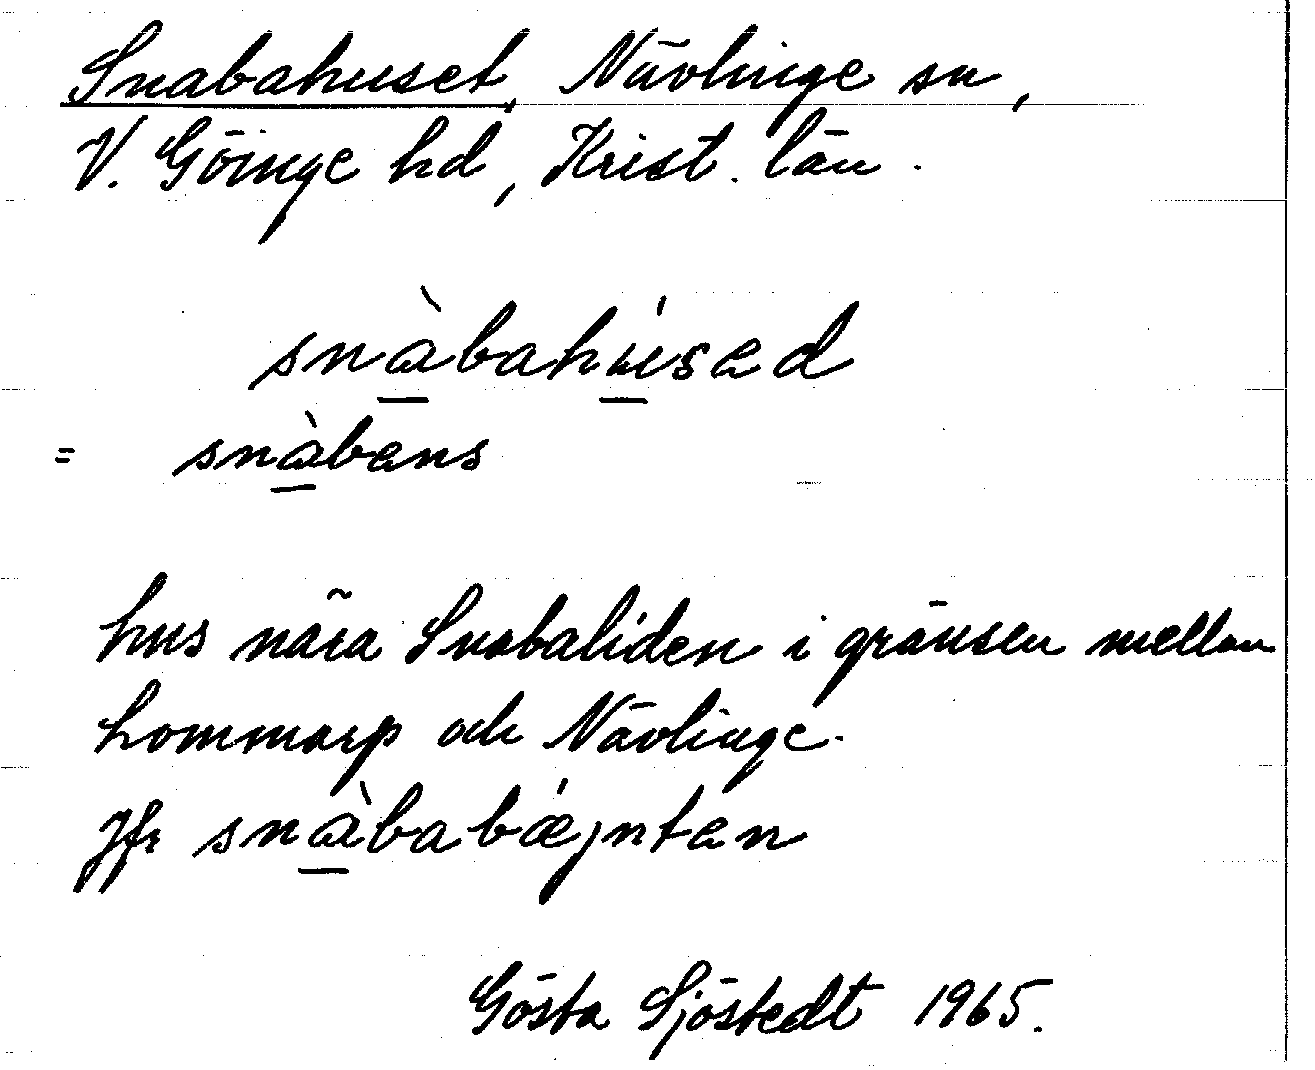 Snabahuset, Nävlinge sn,
V. Göinge hd, Krist. län.
snàbahúsəd
= snàbəns
hus nära Snabaliden i gränsen mellan
Lommarp och Nävlinge.
Jfr snàbabǽjntən
Gösta Sjöstedt 1965.